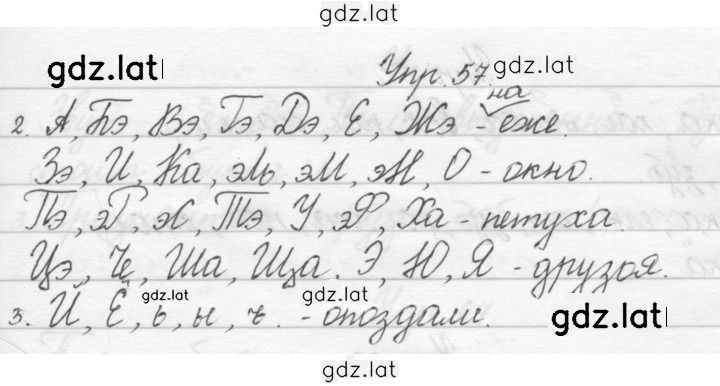 gdz.lat
gdz.lat Упр. 57. gdz.lat
на
2. А Бэ, Вэ, Гэ, Дэ, Е, Жэ - еже.
Зэ, И, Ка, эЛь, эМ, эН, О - окно.
Пэ, эР, эС, Тэ, У, эФ, Ха - петуха.
Цэ, Че, Ша, Ща. Э, Ю, Я - друзья.
gdz.lat gdz.lat
3. Й, Ё, ь, ы, ъ. - опоздали. gdz.lat
gdz.lat